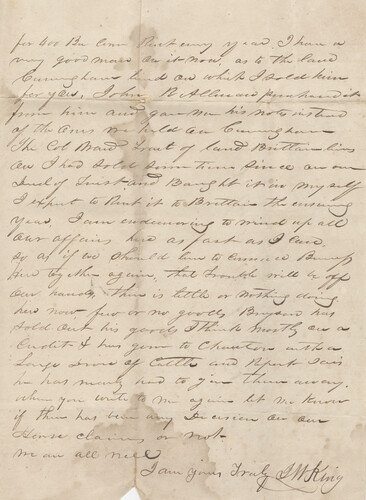 for 600 Bu Corn Rent every year. I have a
very good man on it now, as to the land
Cunningham lived on which I sold him
for you, John R Allman purchased it
from him and gave me his note instead
of the ones we held on Cunningham
The Col Brand tract of land Brittain lives
on I had sold some time since on our
Deed of Trust and Bought it in my self
I expect to Rent it to Brittain the ensuing
year. I am endeavoring to wind up all
our affairs here as fast as I can
so as if we should live to commence Business
here together again, that trouble will be off
our hands, there is little or nothing doing
here now few or no goods, Bryson has
sold out his goods I think mostly on a
Credit & has gone to Charleston with a
Large Drove of Cattle and Report says
he has nearly had to give them away.
when you write to me again let me know
if there has been any Decision on our
Horse claims or not.
we are all well
I am yours Truly J W King